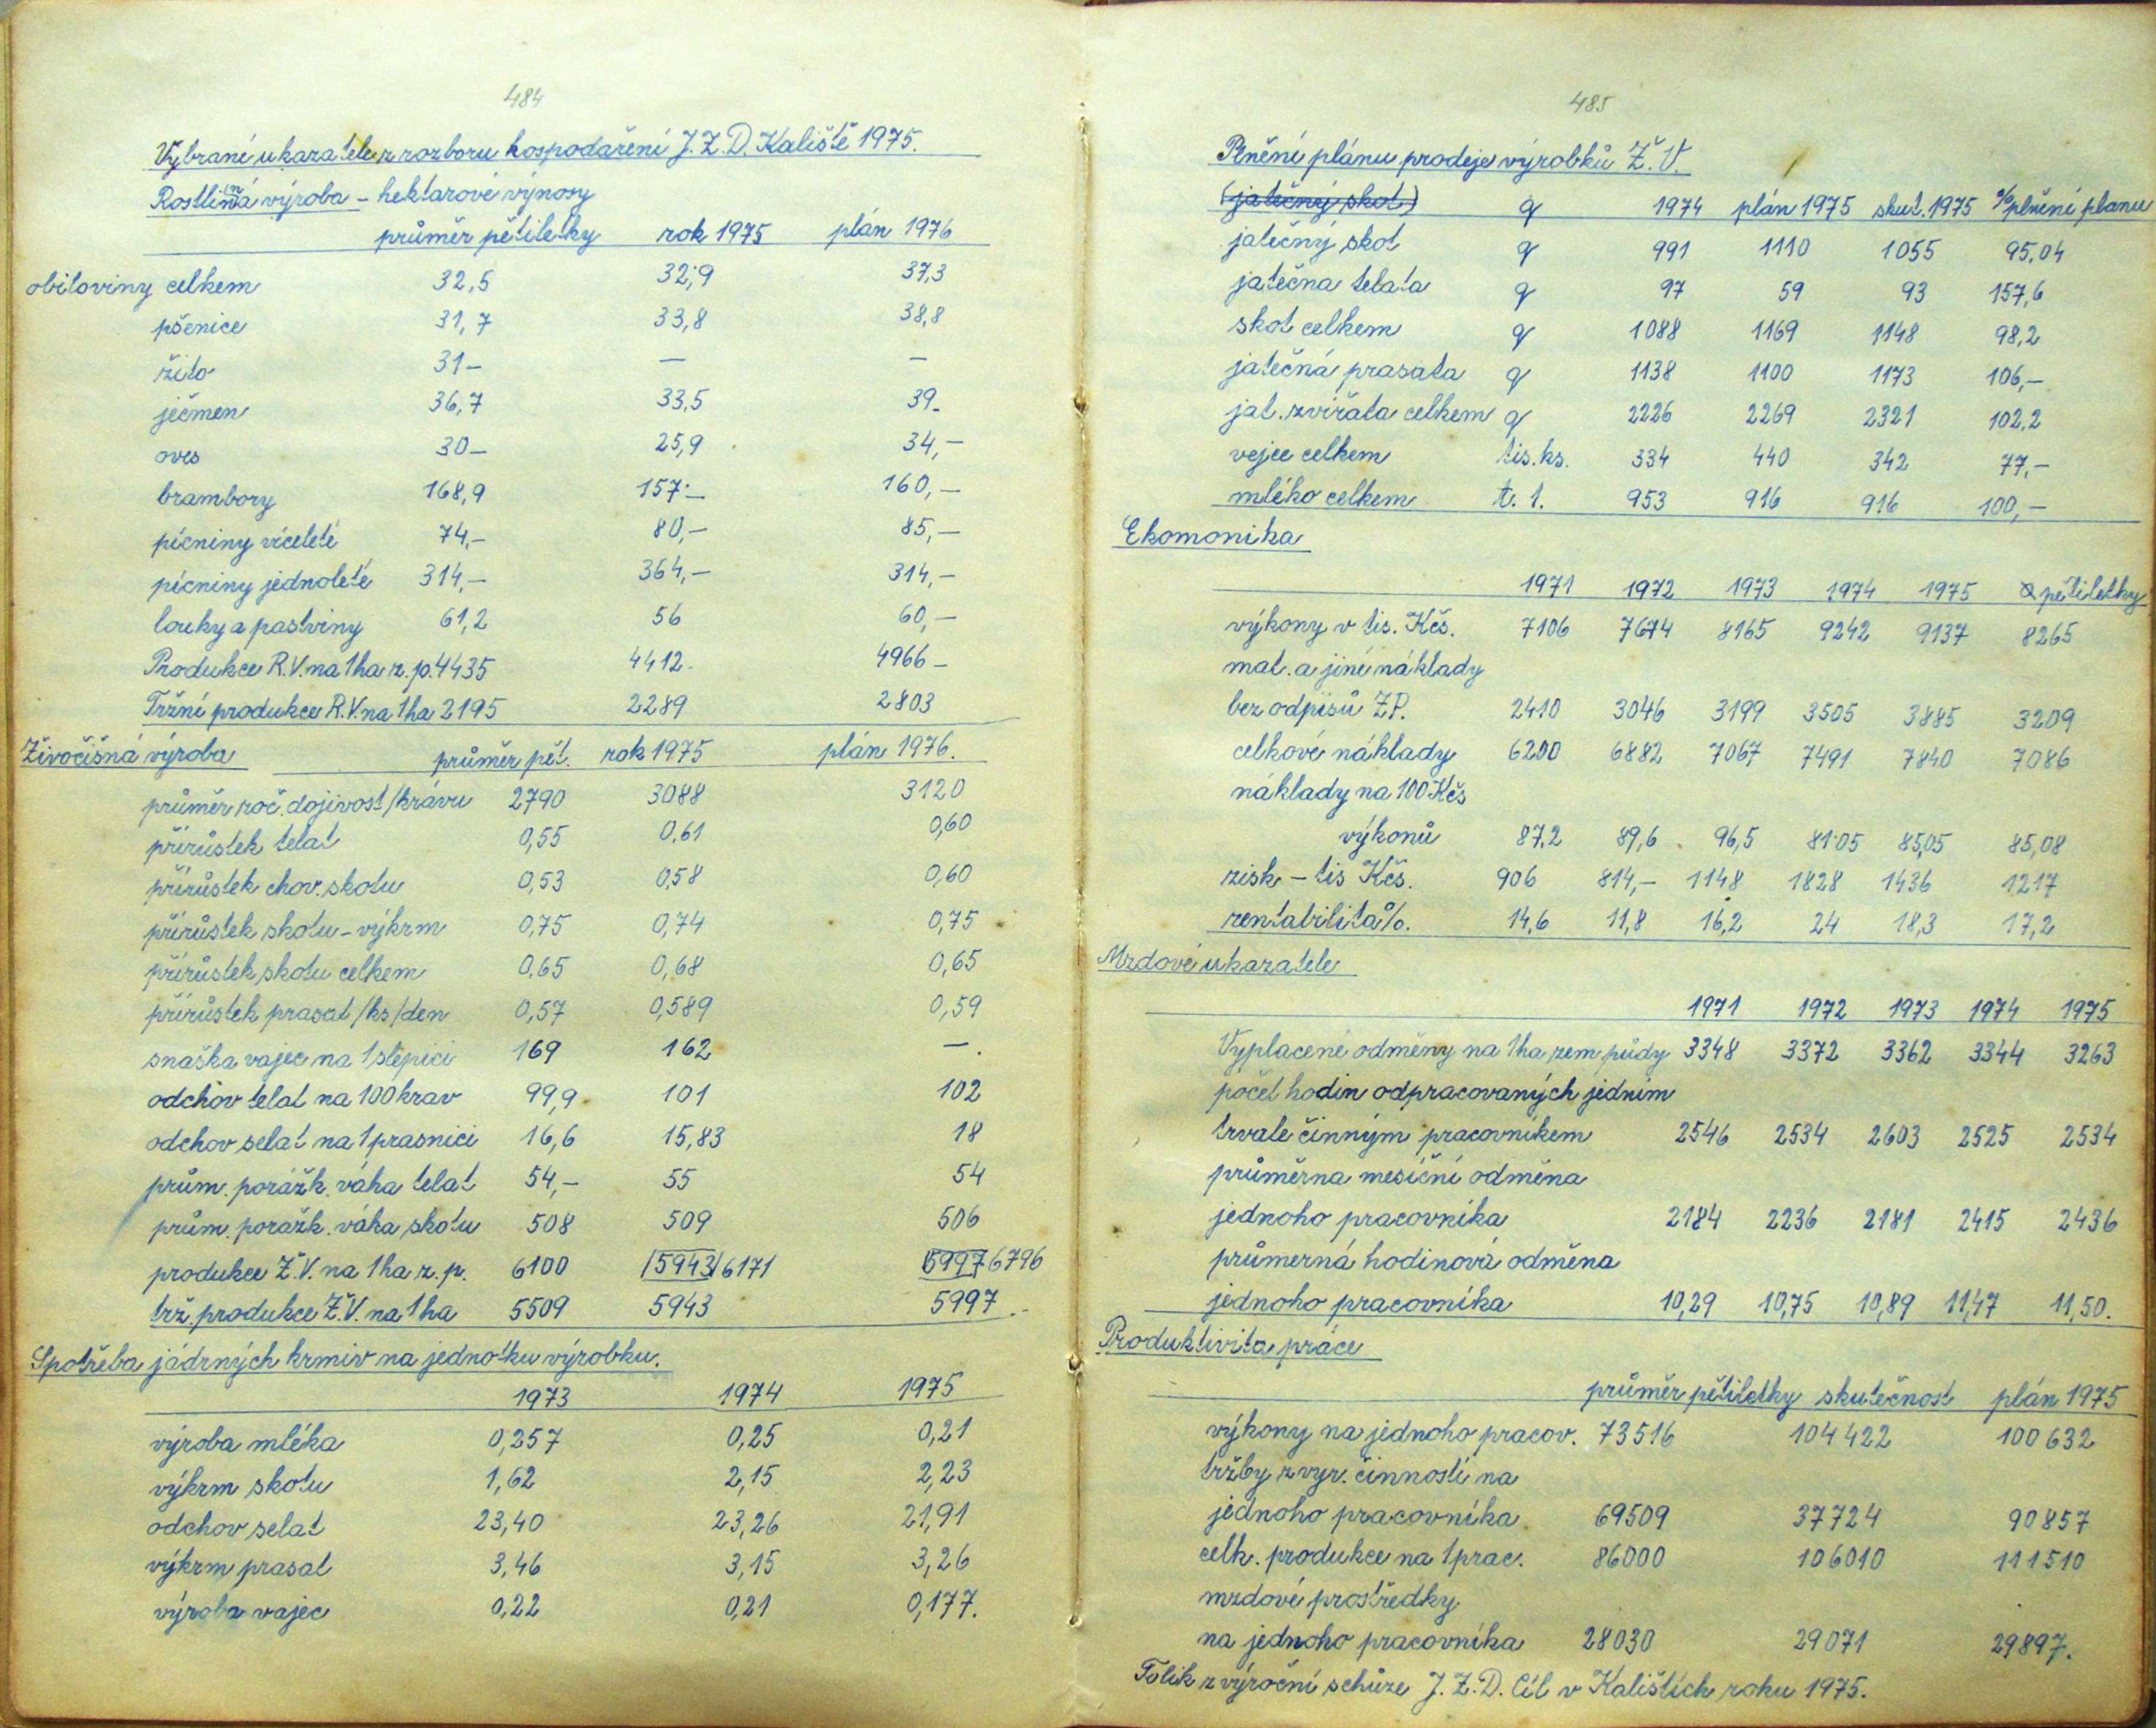 484
Vybrané ukazatele z rozboru hospodaření J.Z.D. Kaliště 1975.
Rostlinná výroba - hektarové výnosy
průměr pětiletky rok 1975 plán 1976
obiloviny celkem 32,5 32,9 37,3
pšenice 31,7 33,8 38,8
žito 31- — —
ječmen 36,7 33,5 39-
oves 30- 25,9 34,-
brambory 168,9 157,- 160,-
pícniny víceleté 74,- 80,- 85,-
pícniny jednoleté 314,- 364,- 314,-
louky a pastviny 61,2 56 60,-
Produkce R.V. na 1 ha z.p. 4435 4412- 4966-
Tržní produkce R.V. na 1 ha 2195 2289 2803
Živočišná výroba průměr pět. rok 1975 plán 1976.
průměr roč. dojivost/krávu 2790 3088 3120
přírůstek telat 0,55 0,61 0,60
přírůstek chov. skotu 0,53 0,58 0,60
přírůstek skotu - výkrm 0,75 0,74 0,75
přírůstek skotu celkem 0,65 0,68 0,65
přírůstek prasat /ks/den 0,57 0,589 0,59
snaška vajec na 1 slepici 169 162 —.
odchov telat na 100 krav 99,9 101 102
odchov selat na 1 prasnici 16,6 15,83 18
prům. porážk. váha telat 54,- 55 54
prům. porážk. váha skotu 508 509 506
produkce Ž.V. na 1 ha z.p. 6100 /5943/ 6171 5997 6796
trž. produkce Ž.V. na 1 ha 5509 5943 5997
Spotřeba jádrných krmiv na jednotku výrobku.
1973 1974 1975
výroba mléka 0,257 0,25 0,21
výkrm skotu 1,62 2,15 2,23
odchov selat 23,40 23,26 21,91
výkrm prasat 3,46 3,15 3,26
výroba vajec 0,22 0,21 0,177.
485
Plnění plánu prodeje výrobků Ž.V.
(jatečný skot) q 1974 plán 1975 skut. 1975 % plnění planu
jatečný skot q 991 1110 1055 95,04
jatečna telata q 97 59 93 157,6
skot celkem q 1088 1169 1148 98,2
jatečná prasata q 1138 1100 1173 106,-
jat. zvířata celkem q 2226 2269 2321 102,2
vejce celkem tis. ks. 334 440 342 77,-
mléko celkem t. l. 953 916 916 100,-
Ekomonika
1971 1972 1973 1974 1975 Ø pětiletky
výkony v tis. Kčs. 7106 7674 8165 9242 9137 8265
mat. a jiné náklady
bez odpisů Z.P. 2410 3046 3199 3505 3885 3209
celkové náklady 6200 6882 7067 7491 7840 7086
náklady na 100 Kčs
výkonů 87,2 89,6 96,5 81·05 85,05 85,08
zisk - tis Kčs. 906 814,- 1148 1828 1436 1217
rentabilita %. 14,6 11,8 16,2 24 18,3 17,2
Mzdové ukazatele
1971 1972 1973 1974 1975
Vyplacené odměny na 1 ha zem půdy 3348 3372 3362 3344 3263
počet hodin odpracovaných jedním
trvale činným pracovníkem 2546 2534 2603 2525 2534
průměrna mesíční odměna
jednoho pracovníka 2184 2236 2181 2415 2436
průmerná hodinová odměna
jednoho pracovníka 10,29 10,75 10,89 11,47 11,50.
Produktivita práce
průměr pětiletky skutečnost plán 1975
výkony na jednoho pracov. 73516 104422 100632
tržby z vyr. činnosti na
jednoho pracovníka 69509 37724 90857
celk. produkce na 1 prac. 86000 106010 111510
mzdové prostředky
na jednoho pracovníka 28030 29071 29897.
Tolik z výroční schůze J.Z.D. Cíl v Kalištích roku 1975.